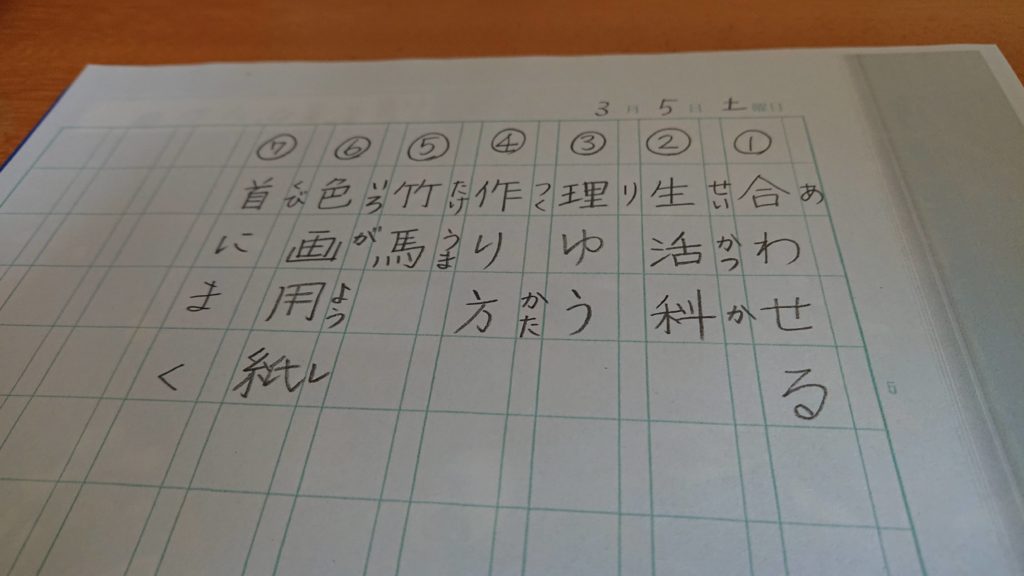 3月5日土曜日
①合わせる
あ
②生活科
せいかつか
③理ゆう
り
④作り方
つくかた
⑤竹馬
たけうま
⑥色画用紙
いろがようし
⑦首にまく
くび